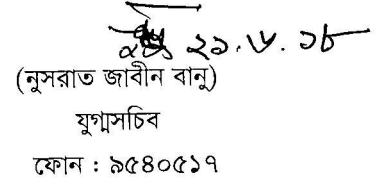 ২১.৬.১৮
(নুসরাত জাবীন বানু)
যুগ্মসচিব
ফোন : ৯৫৪০৫১৭